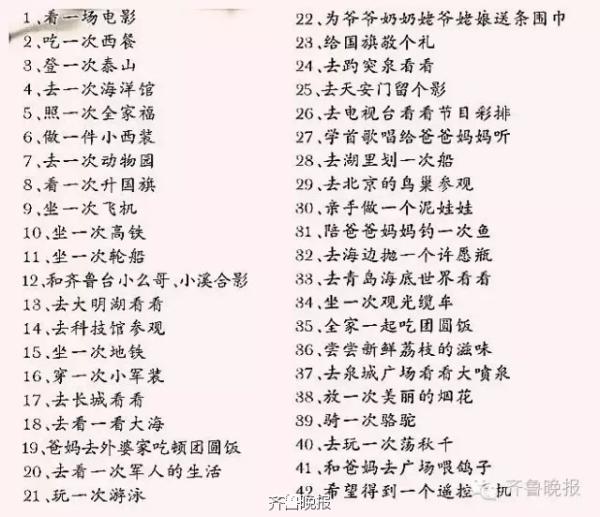 1、看一场电影
2、吃一次西餐
3、登一次泰山
4、去一次海洋馆
5、照一次全家福
6、做一件小西装
7、去一次动物园
8、看一次升国旗
9、坐一次飞机
10、坐一次高铁
11、坐一次轮船
12、和齐鲁台小么哥、小溪合影
13、去大明湖看看
14、去科技馆参观
15、坐一次地铁
16、穿一次小军装
17、去长城看看
18、去看一看大海
19、爸妈去外婆家吃顿团圆饭
20、去看一次军人的生活
21、玩一次游泳
22、为爷爷奶奶姥爷姥娘送条围巾
23、给国旗敬个礼
24、去趵突泉看看
25、去天安门留个影
26、去电视台看看节目彩排
27、学首歌唱给爸爸妈妈听
28、去湖里划一次船
29、去北京的鸟巢参观
30、亲手做一个泥娃娃
31、陪爸爸妈妈钓一次鱼
32、去海边抛一个许愿瓶
33、去青岛海底世界看看
34、坐一次观光缆车
35、全家一起吃团圆饭
36、尝尝新鲜荔枝的滋味
37、去泉城广场看看大喷泉
38、放一次美丽的烟花
39、骑一次骆驼
40、去玩一次荡秋千
41、和爸妈去广场喂鸽子
42、希望得到一个遥控 机
齐鲁晚报
齐鲁晚报